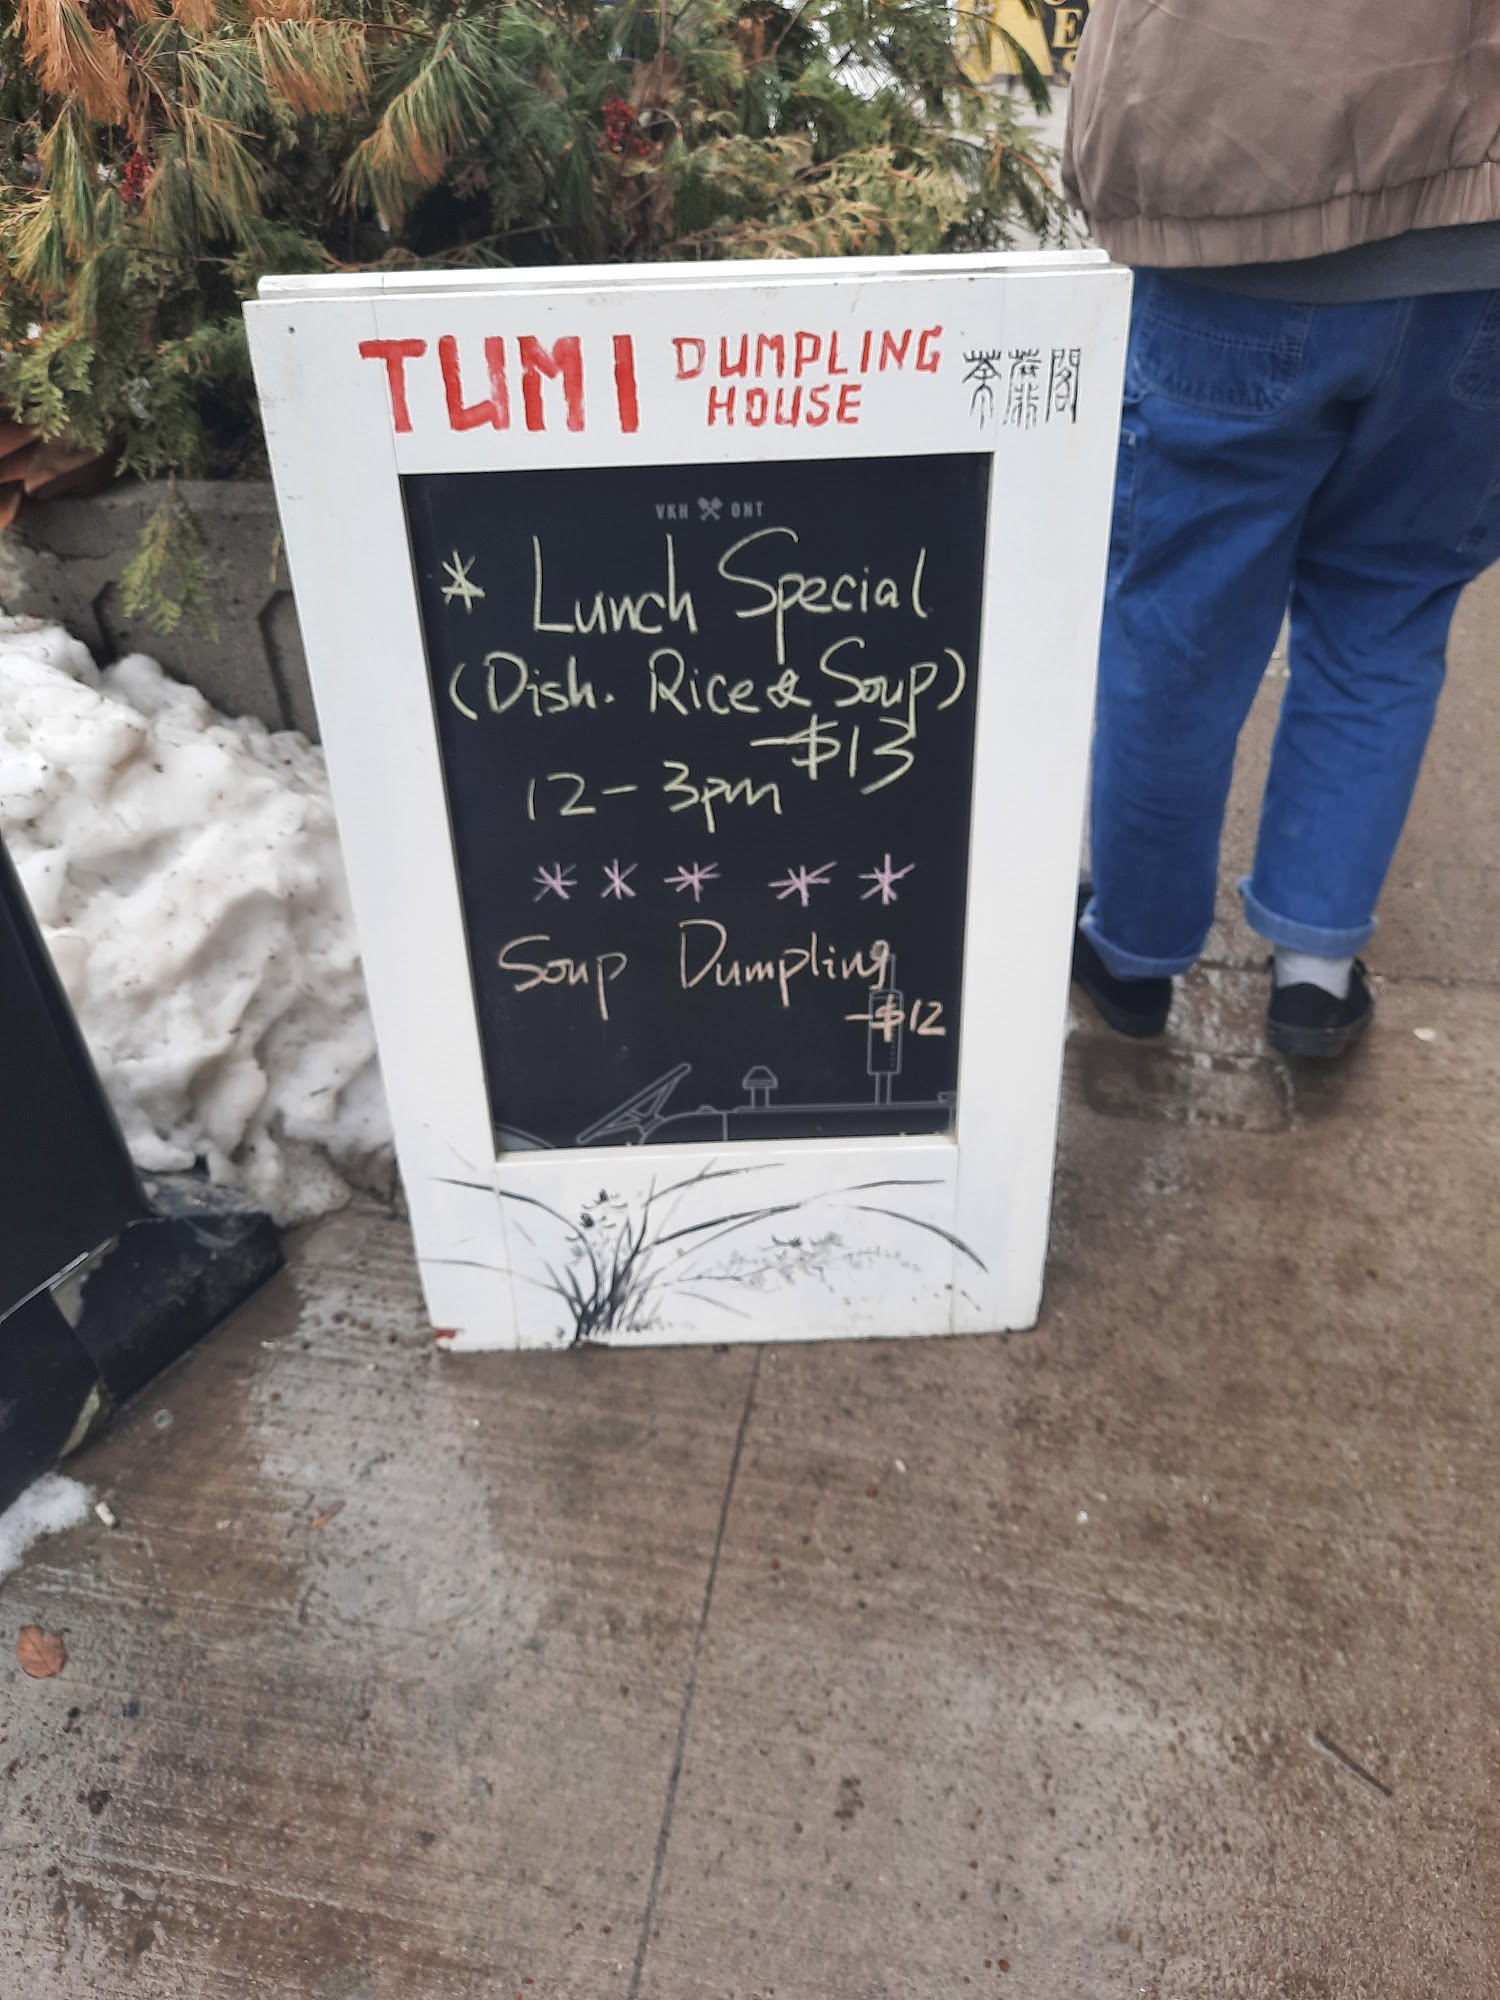 TUMI DUMPLING HOUSE 荼蘼閣
VKH ONT
* Lunch Special
(Dish. Rice & Soup)
-$13
12-3pm
* * * * *
Soup Dumpling
-$12